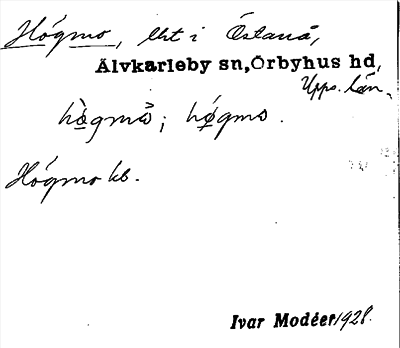 Högmo, lht i Östanå,
Älvkarleby sn, Örbyhus hd,
Upps. län.
hògmὼ; høgmo.
Högmo kb.
Ivar Modéer 1928.